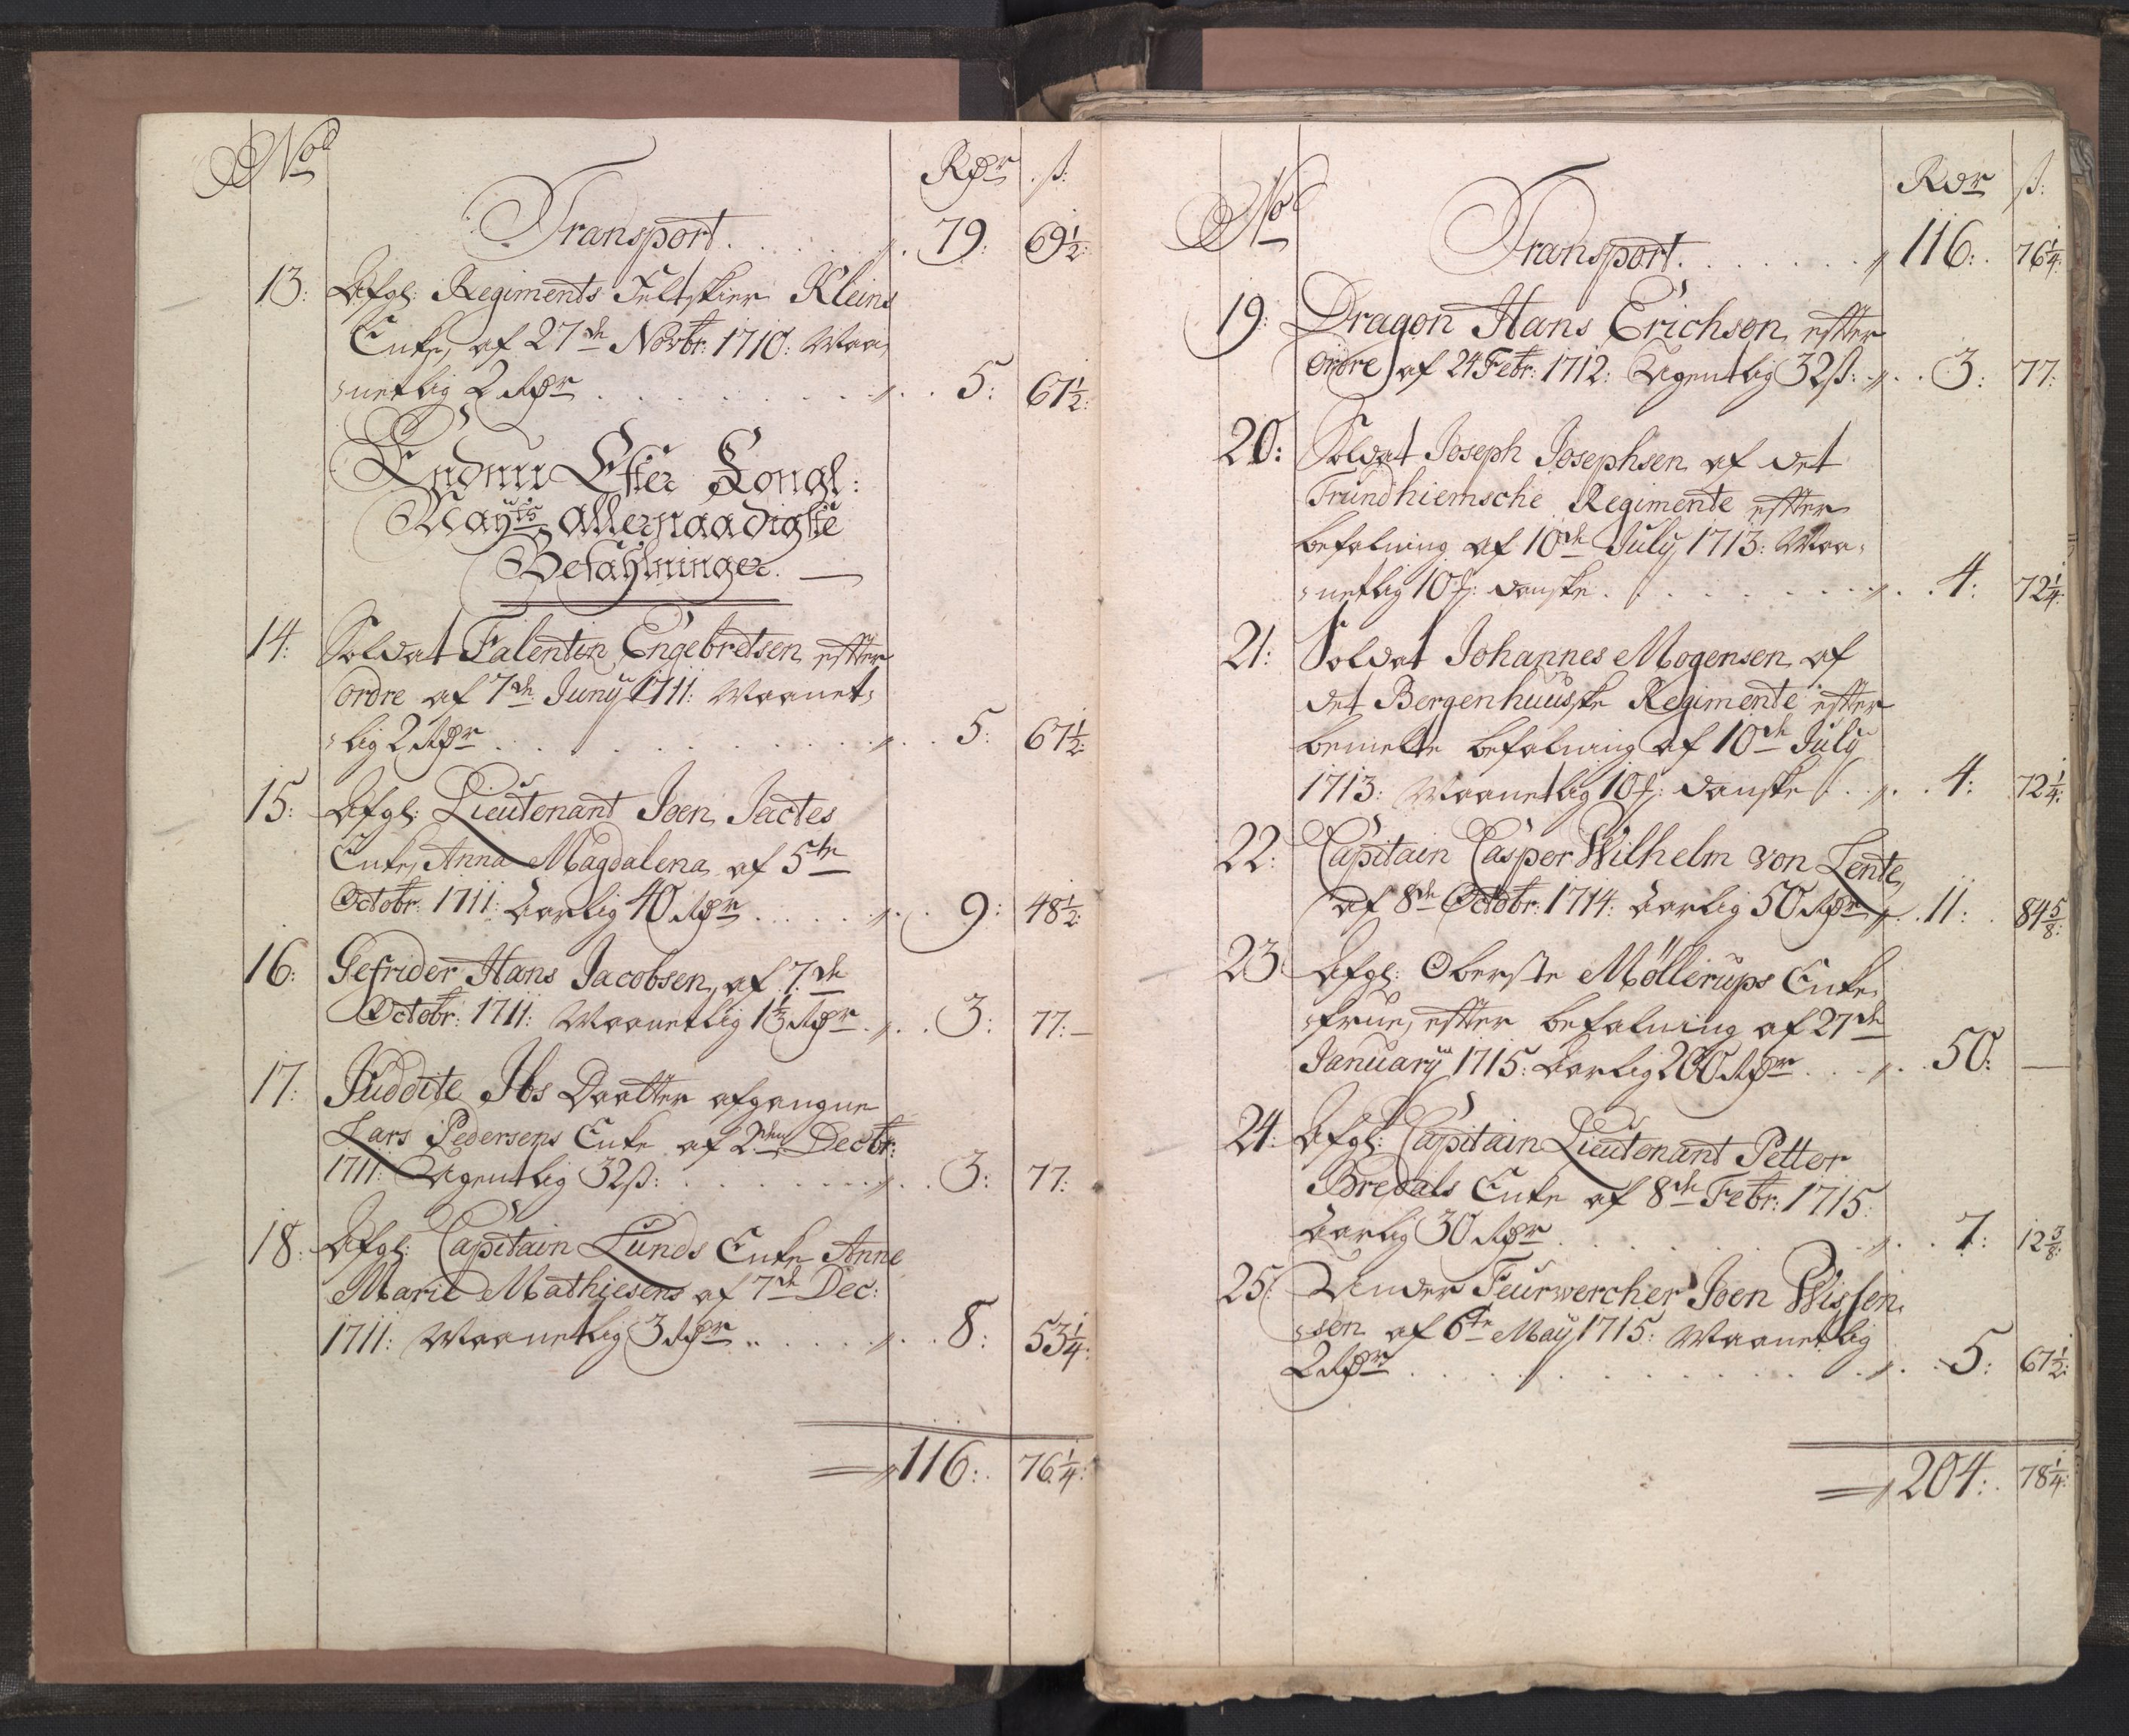 No
Rdr ß:
Transport . . . . . . 79: 69½:
13: Afgl: Regiments Feltskier Kleins
Enke, af 27de Novbr: 1710: Maa„
„netlig 2 Rdr . . . . . . . 5: 67½:
Endnu Efter Kongl:
Mayts allernaadigste
Befahlninger. —
14: Soldat Falentin Engebretsen efter
ordre af 7de Juny 1711: Maanet„
„lig 2 Rdr . . . . . . . 5: 67½:
15: Afgl: Lieutenant Joen Jactes
Enke, Anna Magdalena, af 5te
Octobr: 1711: Aarlig 40 Rdr . . . . . 9: 48½:
16: Gefrider Hans Jacobsen, af 7de
Octobr: 1711: Maanetlig 1⅓ Rdr . . . 3: 77: —
17: Juddite Ibs Daatter afgangne
Lars Pedersens Enke af 2den Decbr:
1711: Ugentlig 32 ß: . . . . . . . 3: 77:
18: Afgl: Capitain Lunds Enke Anne
Marie Mathiesens af 7de Dec:
1711: Maanetlig 3 Rdr . . . . . . 8: 53¼:
116: 76¼:
No
Rdr ß:
Transport . . . . . . 116: 76¼:
19: Dragon Hans Erichsen, efter
ordre af 24 Febr: 1712: Ugentlig 32 ß: . . 3: 77:
20: Soldat Joseph Josephsen af det
Trundhiemsche Regimente efter
befalning af 10de July 1713: Maa„
„netlig 10 f: danske . . . . . . . 4: 72¼:
21: Soldat Johannes Mogensen, af
det Bergenhuuske Regimente efter
bemelte befalning af 10de July
1713: Maanetlig 10 f: danske . . . 4: 72¼:
22: Capitain Casper Wilhelm von Lente,
af 8de Octobr: 1714: Aarlig 50 Rdr . . 11: 84⅝:
23: Afgl: Oberste Møllerups Enke„
„frue, efter befalning af 27de
January 1715: Aarlig 200 Rdr . . . 50: —
24: Afgl: Capitain Lieutenant Petter
Bredals Enke af 8de Febr: 1715:
Aarlig 30 Rdr . . . . . . . 7: 12⅜:
25: Under Feurwercher Joen Wissen„
„sen af 6te May 1715: Maanetlig
2 Rdr . . . . . . . . . 5: 67½:
204: 78¼: